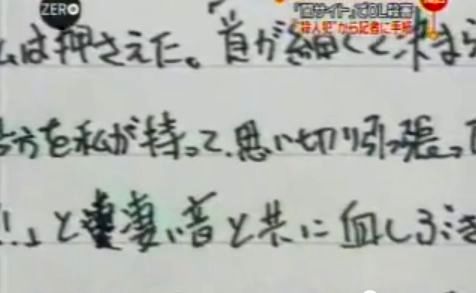 ZERO
「闇サイト」でOL殺害
"殺人犯"から記者に手紙
は押さえた。首が細くて決まら
方を私が持って、思い切り引っ張っ
!!」と凄い音と共に血しぶき